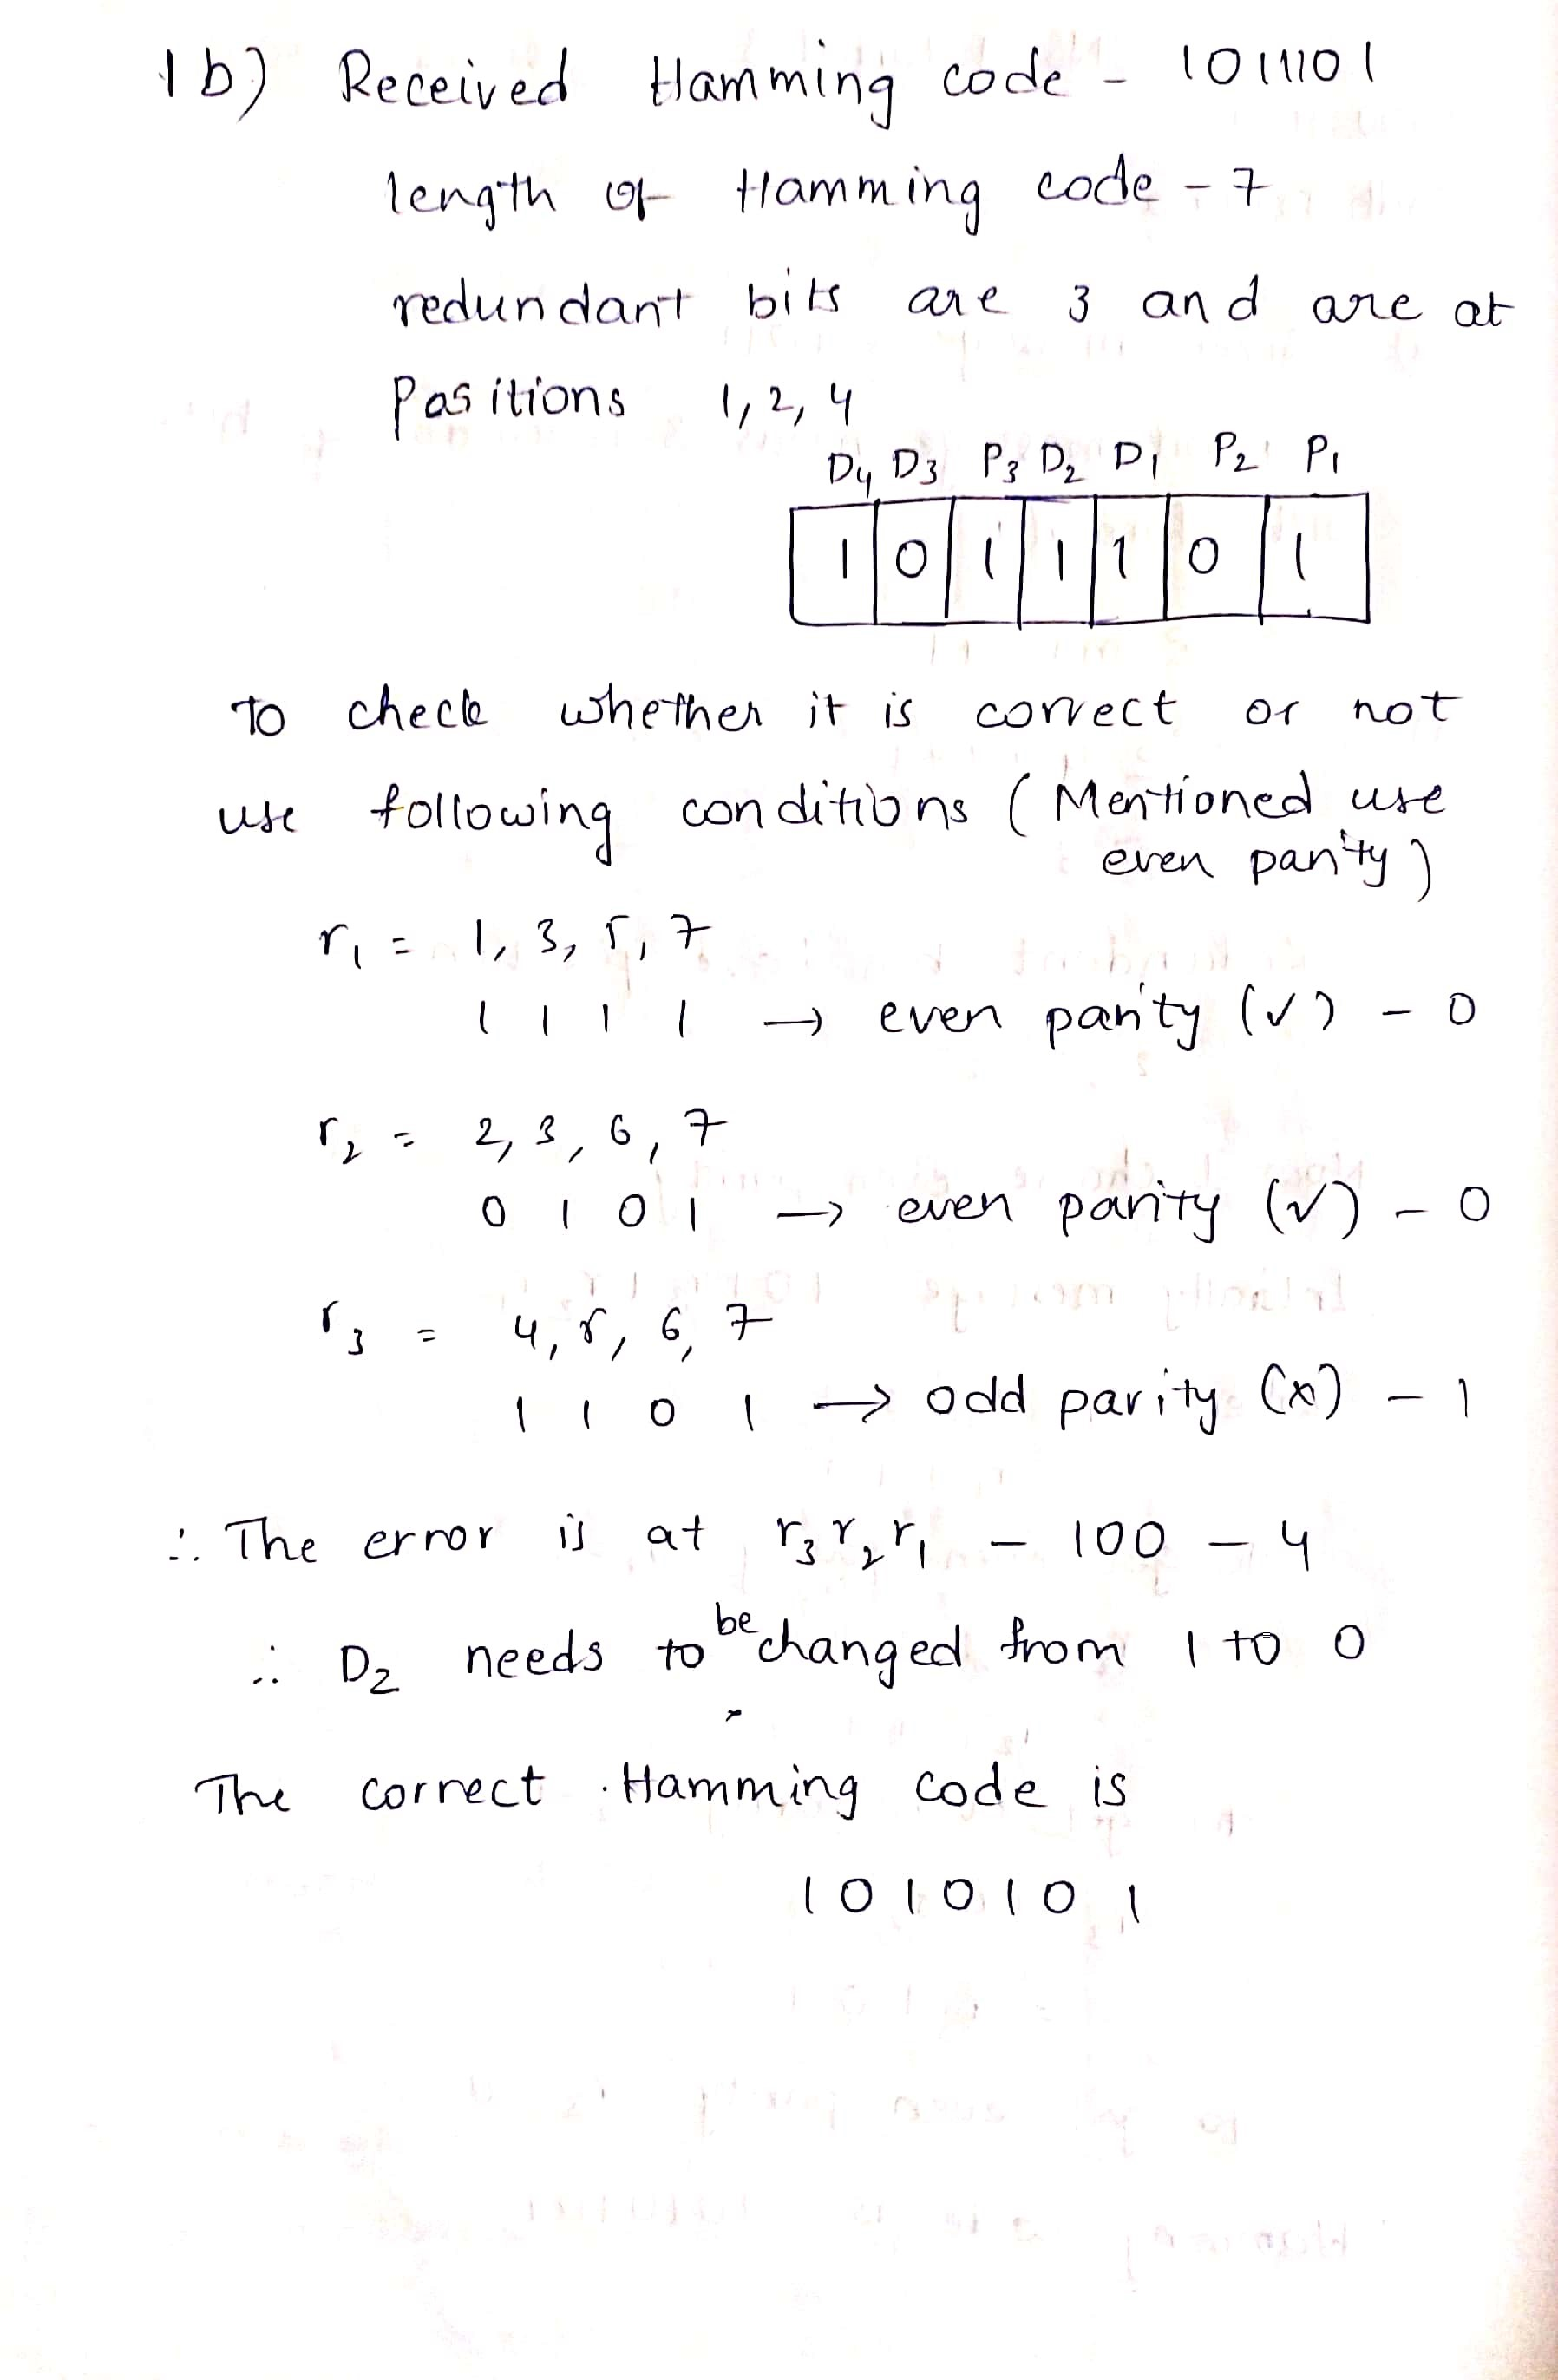 1b) Received Hamming code - 1011101
length of Hamming code - 7
redundant bits are 3 and are at
Positions 1, 2, 4
D4 D3 P3 D2 D1 P2 P1
1 0 1 1 1 0 1
To check whether it is correct or not
use following conditions ( Mentioned use
even parity )
r1 = 1, 3, 5, 7
1 1 1 1 → even parity (✓) - 0
r2 = 2, 3, 6, 7
0 1 0 1 → even parity (✓) - 0
r3 = 4, 5, 6, 7
1 1 0 1 → odd parity (x) - 1
∴ The error is at r3 r2 r1 - 100 - 4
∴ D2 needs to be changed from 1 to 0
The correct Hamming code is
1 0 1 0 1 0 1